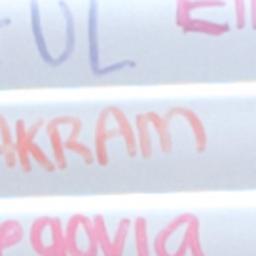 UL
AKRAM
egovia